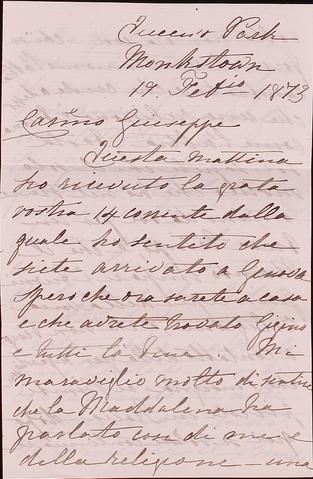 Queen's Park
Monkstown
19. Feb.io 1873
Carimo Giuseppe
Questa mattina
ho ricevuto la grata
vostra 14 corrente dalla
quale ho sentito che
siete arrivato a Genova
spero che ora sarete a casa
e che avrete trovato Gigino
e tutti la bene. Mi
maraviglio molto di sentire
che la Maddalena ha
parlato con di me e
della religione — una